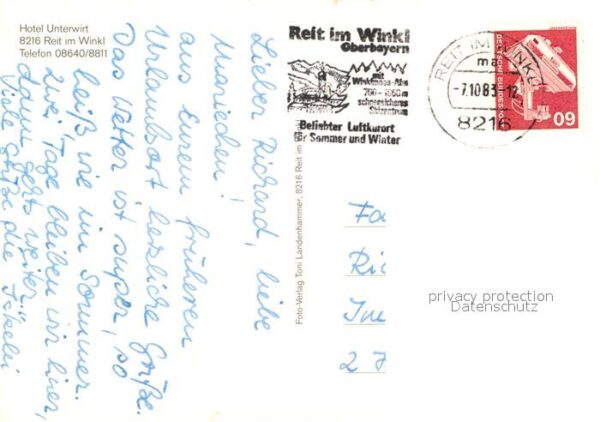 Hotel Unterwirt
8216 Reit im Winkl
Telefon 08640/8811
Lieber Richard, liebe
aus Eurem früheren
Urlaubsort herzliche Grüße.
Das Wetter ist super, so
heiß wie im Sommer.
Zwei Tage bleiben wir hier,
dann geht's weiter.
Viele Grüße die
Foto-Verlag Toni Landenhammer, 8216 Reit im
Reit im Winkl
Oberbayern
mit
Winklmoos-Alm
700 - 1850 m
schneesicheres
Skizentrum
Beliebter Luftkurort
für Sommer und Winter
REIT IM WINKL
ma
-7.10.83-12
8216
DEUTSCHE BUNDESPOST
60
Fa
Ric
2
privacy protection
Datenschutz